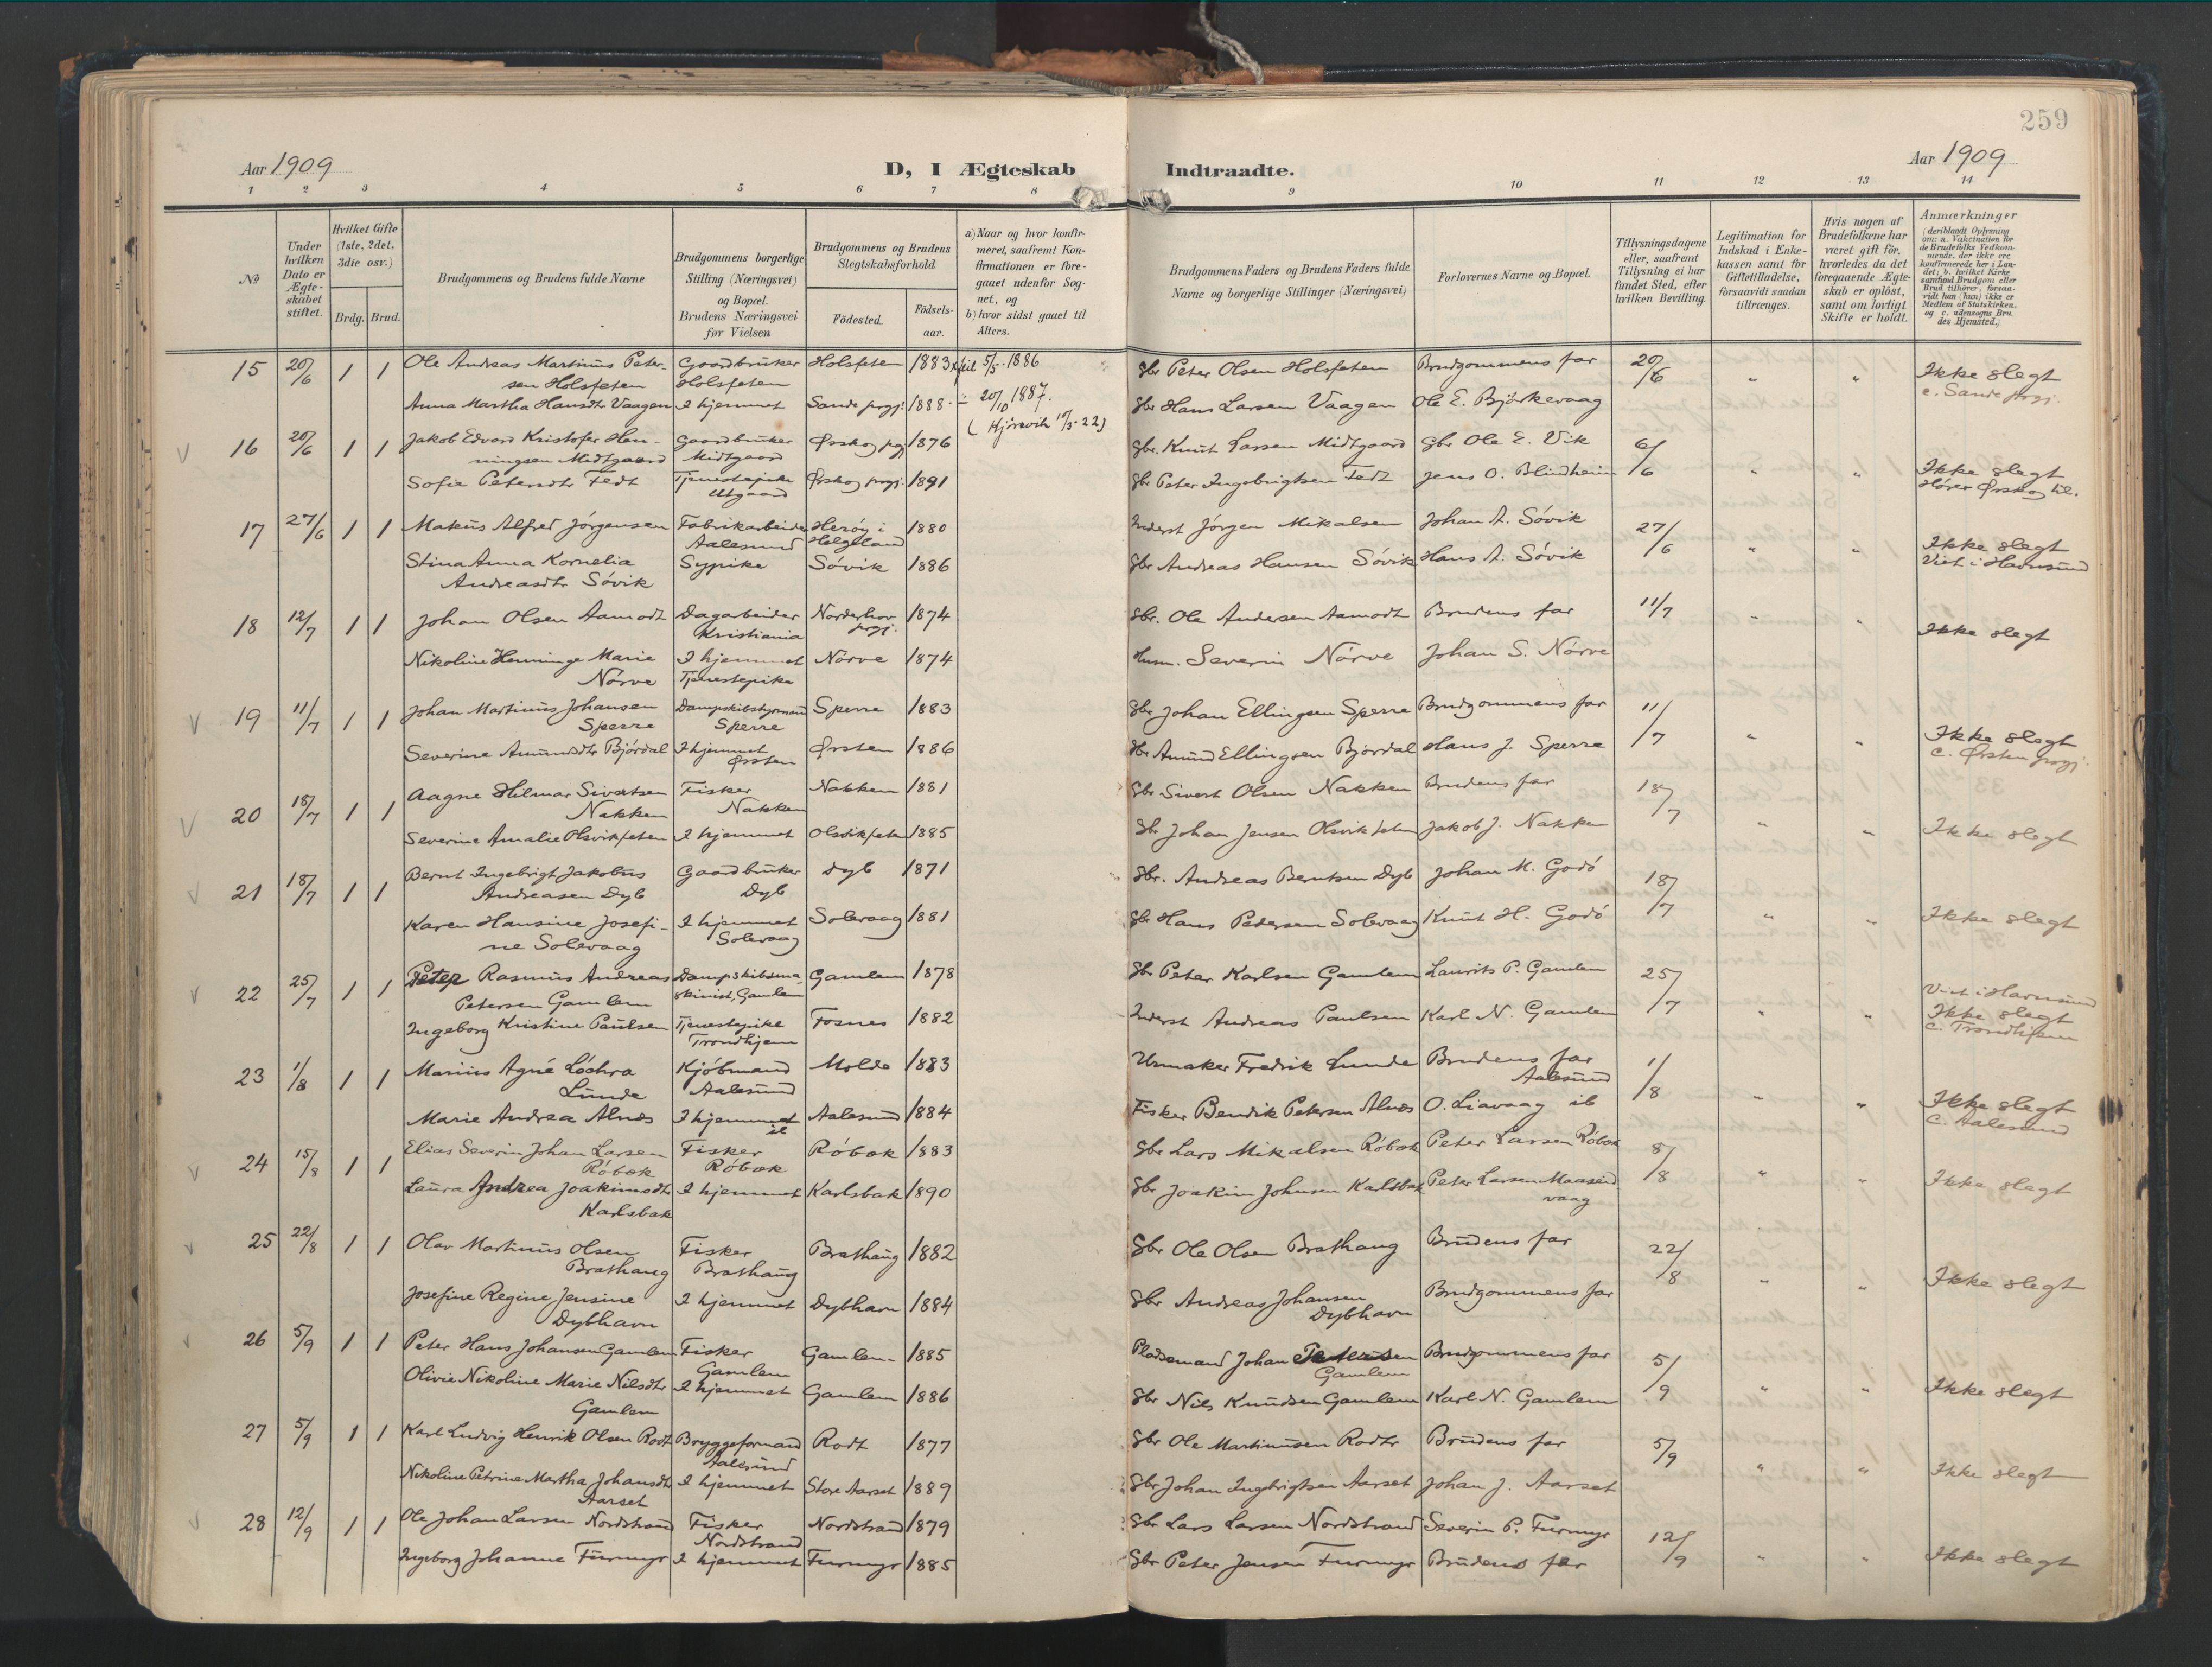 259
Aar 1909
D, I Ægteskab
Indtraadte.
Aar 1909
1 2 3 4 5 6 7 8 9 10 11 12 13 14
№
Under hvilken Dato er Ægte-skabet stiftet.
Hvilket Gifte (1ste, 2det, 3die osv.)
Brdg. Brud.
Brudgommens og Brudens fulde Navne
Brudgommens borgerlige Stilling (Næringsvei) og Bopæl. Brudens Næringsvei før Vielsen
Brudgommens og Brudens Slegtskabsforhold
Födested.
Födsels-aar.
a) Naar og hvor konfir-meret, saafremt Kon-firmationen er fore-gaaet udenfor Sog-net, og b) hvor sidst gaaet til Alters.
Brudgommens Faders og Brudens Faders fulde Navne og borgerlige Stillinger (Næringsvei)
Forlovernes Navne og Bopæl.
Tillysningsdagene eller, saafremt Tillysning ei har fundet Sted, efter hvilken Bevilling.
Legitimation for Indskud i Enke-kassen samt for Giftetilladelse, forsaavidt saadan tiltrænges.
Hvis nogen af Brudefolkene har været gift før, hvorledes da det foregaaende Ægte-skab er oplöst, samt om lovligt Skifte er holdt.
Anmærkninger (deriblandt Oplysning om: a. Vakcination for de Brudefolks Vedkom-mende, der ikke ere konfirmerede her i Lan-det; b. hvilket Kirke samfund Brudgom eller Brud tilhörer, forsaa-vidt han (hun) ikke er Medlem af Statskirken. og c. udensogns Bru des Hjemsted.)
15 20/6 1 1 Ole Andreas Martinus Peter- Gaardbruker Holsfeten 1883 x feil 5/5. 1886 Gbr Peter Olsen Holsfeten Brudgommens far 20/6 " " Ikke slegt
sen Holsfeten Holsfeten c. Sande prgj.
Anna Martha Hansdtr Vaagen I hjemmet Sande prgj. 1888 - 20/10 1887. Gbr Hans Larsen Vaagen Ole E. Björkevaag
16 20/6 1 1 Jakob Edvard Kristofer Hen- Gaardbruker Ørskog prgj 1876 Gbr. Knut Larsen Midtgaard Gbr Ole E. Vik 6/6 " "
ningsen Midtgaard Midtgaard
Sofie Petersdtr Fedt Tjenestepike Ørskog prgj. 1891 Gbr Peter Ingebrigtsen Fedt Jens O. Blindheim Ikke slegt
Utgaard Hører Ørskog til.
17 27/6 1 1 Makus Alfred Jörgensen Fabrikarbeider Heröy i 1880 Inderst Jörgen Mikalsen Johan A. Sövik 27/6 " " Ikke slegt
Aalesund Helgeland Viet i Havnsund
Stina Anna Kornelia Sypike Sövik 1886 Gbr Andreas Hansen Sövik Hans A. Sövik
Andreasdtr Sövik
18 12/7 1 1 Johan Olsen Aamodt Dagarbeider Norderhov 1874 Gbr. Ole Andersen Aamodt Brudens far 11/7 " " Ikke slegt
Kristiania prgj.
Nikoline Henninge Marie I hjemmet Nörve 1874 Husm. Severin Nörve Johan S. Nörve
Nörve Tjenestepike
19 11/7 1 1 Johan Martinus Johansen Dampskibstyrmand Sperre 1883 Gbr Johan Ellingsen Sperre Brudgommens far 11/7 " " Ikke slegt
Sperre Sperre c. Ørsten prgj.
Severine Amundsdtr Björdal I hjemmet Ørsten 1886 Gbr Amund Ellingsen Björdal Hans J. Sperre
Ørsten
20 18/7 1 1 Aagne Hilmar Sivertsen Fisker Nakken 1881 Gbr Sivert Olsen Nakken Brudens far 18/7 " " Ikke slegt
Nakken Nakken
Severine Amalie Olsvikfeten I hjemmet Olsvikfeten 1885 Gbr Johan Jensen Olsvikfeten Jakob J. Nakken
21 18/7 1 1 Bernt Ingebrigt Jakobus Gaardbruker Dyb 1871 Gbr. Andreas Berntsen Dyb Johan M. Godö 18/7 " " Ikke slegt
Andreasen Dyb Dyb
Karen Hansine Josefi- I hjemmet Solevaag 1881 Gbr Hans Pedersen Solevaag Knut H. Godö
ne Solevaag Solevaag
22 25/7 1 1 Peter Rasmus Andreas Dampskibsma- Gamlem 1878 Gbr Peter Karlsen Gamlem Laurits P. Gamlem 25/7 " " Viet i Havnsund
Petersen Gamlem skinist, Gamlem Ikke slegt
Ingeborg Kristine Paulsen Tjenestepike Fosnes 1882 Inderst Andreas Paulsen Karl N. Gamlem c. Trondhjem
Trondhjem
23 1/8 1 1 Marius Agné Löchra Kjöbmand Molde 1883 Urmaker Fredrik Lunde Brudens far 1/8 " " Ikke slegt
Lunde Aalesund Aalesund c. Aalesund
Marie Andrea Alnæs I hjemmet Aalesund 1884 Fisker Bendik Petersen Alnæs O. Liavaag ib
ib
24 15/8 1 1 Elias Severin Johan Larsen Fisker Röbæk 1883 Gbr Lars Mikalsen Röbæk Peter Larsen Röbæk 8/8 " " Ikke slegt
Röbæk Röbæk
Laura Andrea Joakimsdtr I hjemmet Karlsbak 1890 Gbr Joakim Johnsen Karlsbak Peter Larsen Maaseid
Karlsbak vaag
25 22/8 1 1 Olav Martinus Olsen Fisker Brathaug 1882 Gbr Ole Olsen Brathaug Brudens far 22/8 " " Ikke slegt
Brathaug Brathaug
Josefine Regine Jensine I hjemmet Dybhavn 1884 Gbr Andreas Johansen Brudgommens far
Dybhavn Dybhavn
26 5/9 1 1 Peter Hans Johansen Gamlem Fisker Gamlem 1885 Pladsemand Johan Petersen Brudgommens far 5/9 " " Ikke slegt
Gamlem Gamlem
Olivie Nikoline Marie Nilsdtr I hjemmet Gamlem 1886 Gbr Nils Knudsen Gamlem Karl N. Gamlem
Gamlem
27 5/9 1 1 Karl Ludvig Henrik Olsen Rodt Bryggeformand Rodt 1877 Gbr Ole Martinusen Rodtr Brudens far 5/9 " " Ikke slegt
Aalesund
Nikoline Petrine Martha Johansdtr I hjemmet Store Aarset 1889 Gbr Johan Ingebrigtsen Aarset Johan J. Aarset
Aarset
28 12/9 1 1 Ole Johan Larsen Nordstrand Fisker Nordstrand 1879 Gbr Lars Larsen Nordstrand Severin P. Furmyr 12/9 " " Ikke slegt
Nordstrand
Ingeborg Johanne Furmyr I hjemmet Furmyr 1885 Gbr Peter Jensen Furmyr Brudens far